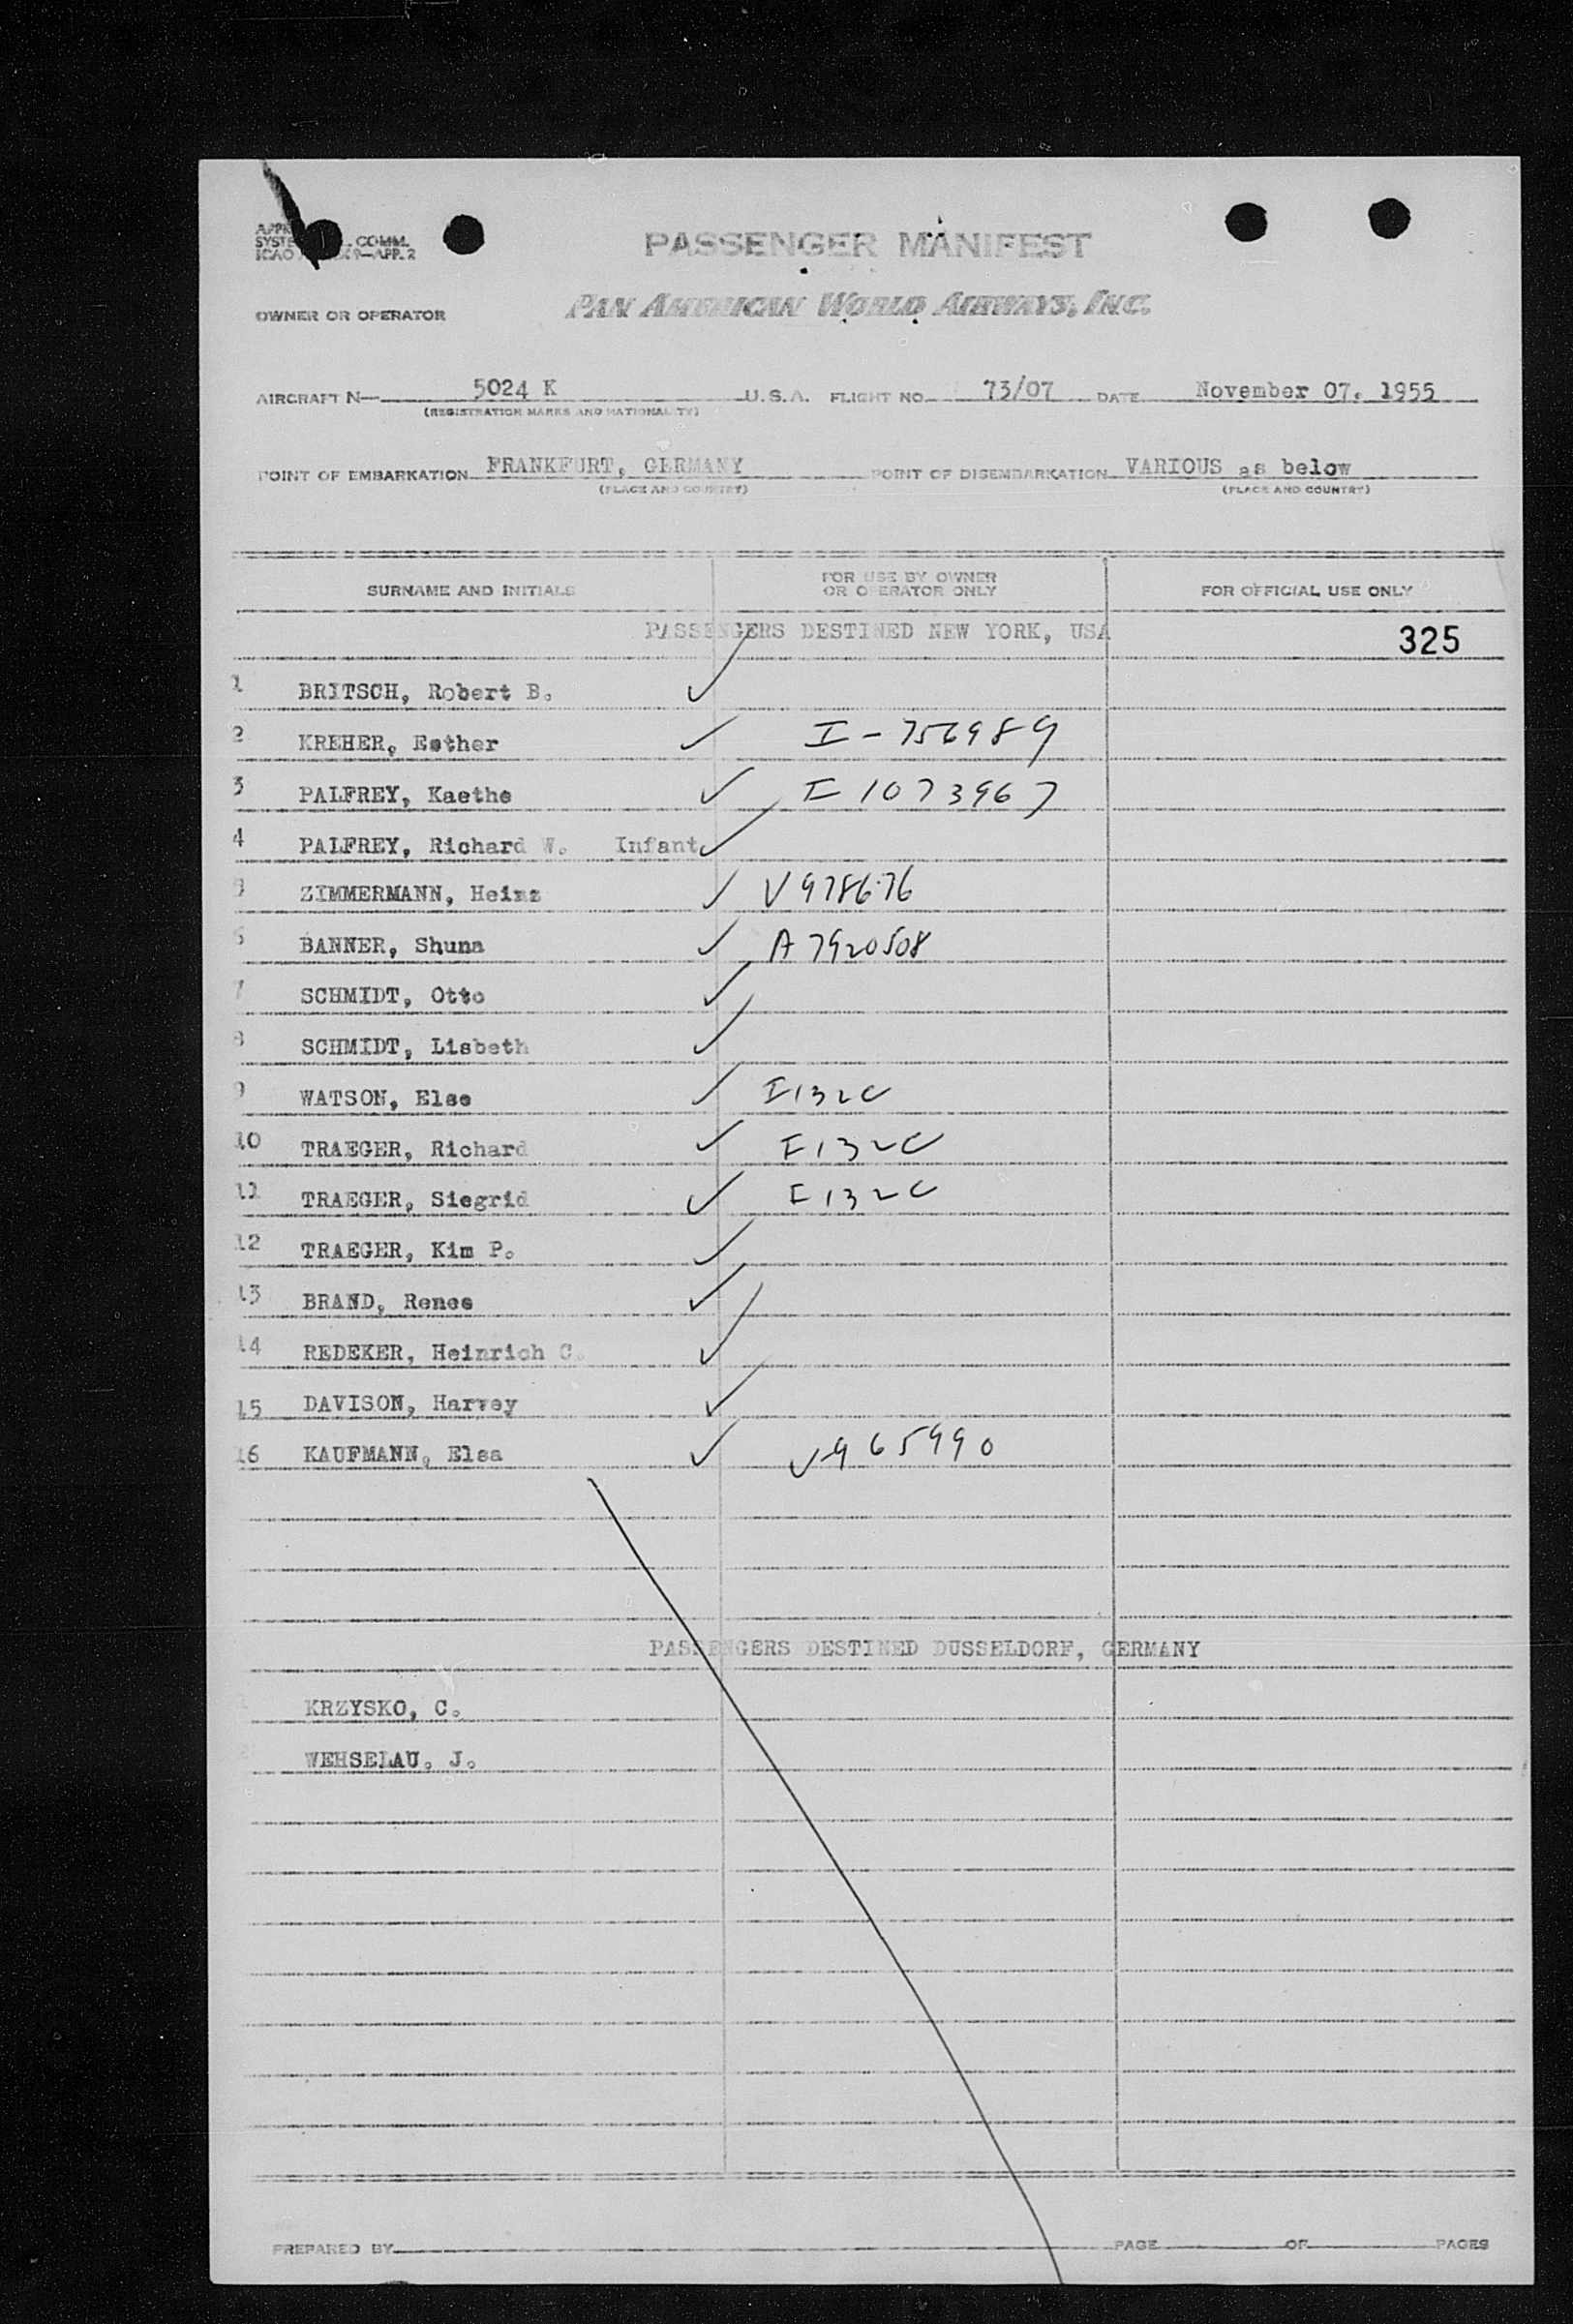 COMM.
PASSENGER MANIFEST
OWNER OR OPERATOR PAN AMERICAN WORLD AIRWAYS, INC.
AIRCRAFT N— 5024 K U.S.A. FLIGHT NO. 73/07 DATE November 07. 1955
(REGISTRATION MARKS AND NATIONALITY)
POINT OF EMBARKATION FRANKFURT, GERMANY POINT OF DISEMBARKATION VARIOUS as below
(PLACE AND COUNTRY) (PLACE AND COUNTRY)
SURNAME AND INITIALS FOR USE BY OWNER OR OPERATOR ONLY FOR OFFICIAL USE ONLY
PASSENGERS DESTINED NEW YORK, USA 325
1 BRITSCH, Robert B. ✓
2 KREHER, Esther ✓ I-756989
3 PALFREY, Kaethe ✓ I 1073967
4 PALFREY, Richard W. Infant ✓
5 ZIMMERMANN, Heinz ✓ V 978676
6 BANNER, Shuna ✓ A 7920508
7 SCHMIDT, Otto ✓
8 SCHMIDT, Lisbeth ✓
9 WATSON, Else ✓ I132C
10 TRAEGER, Richard ✓ I132C
11 TRAEGER, Siegrid ✓ I132C
12 TRAEGER, Kim P. ✓
13 BRAND, Renee ✓
14 REDEKER, Heinrich C. ✓
15 DAVISON, Harvey ✓
16 KAUFMANN, Elsa ✓ V-965990
PASSENGERS DESTINED DUSSELDORF, GERMANY
KRZYSKO, C.
WEHSELAU, J.
PREPARED BY PAGE OF PAGES